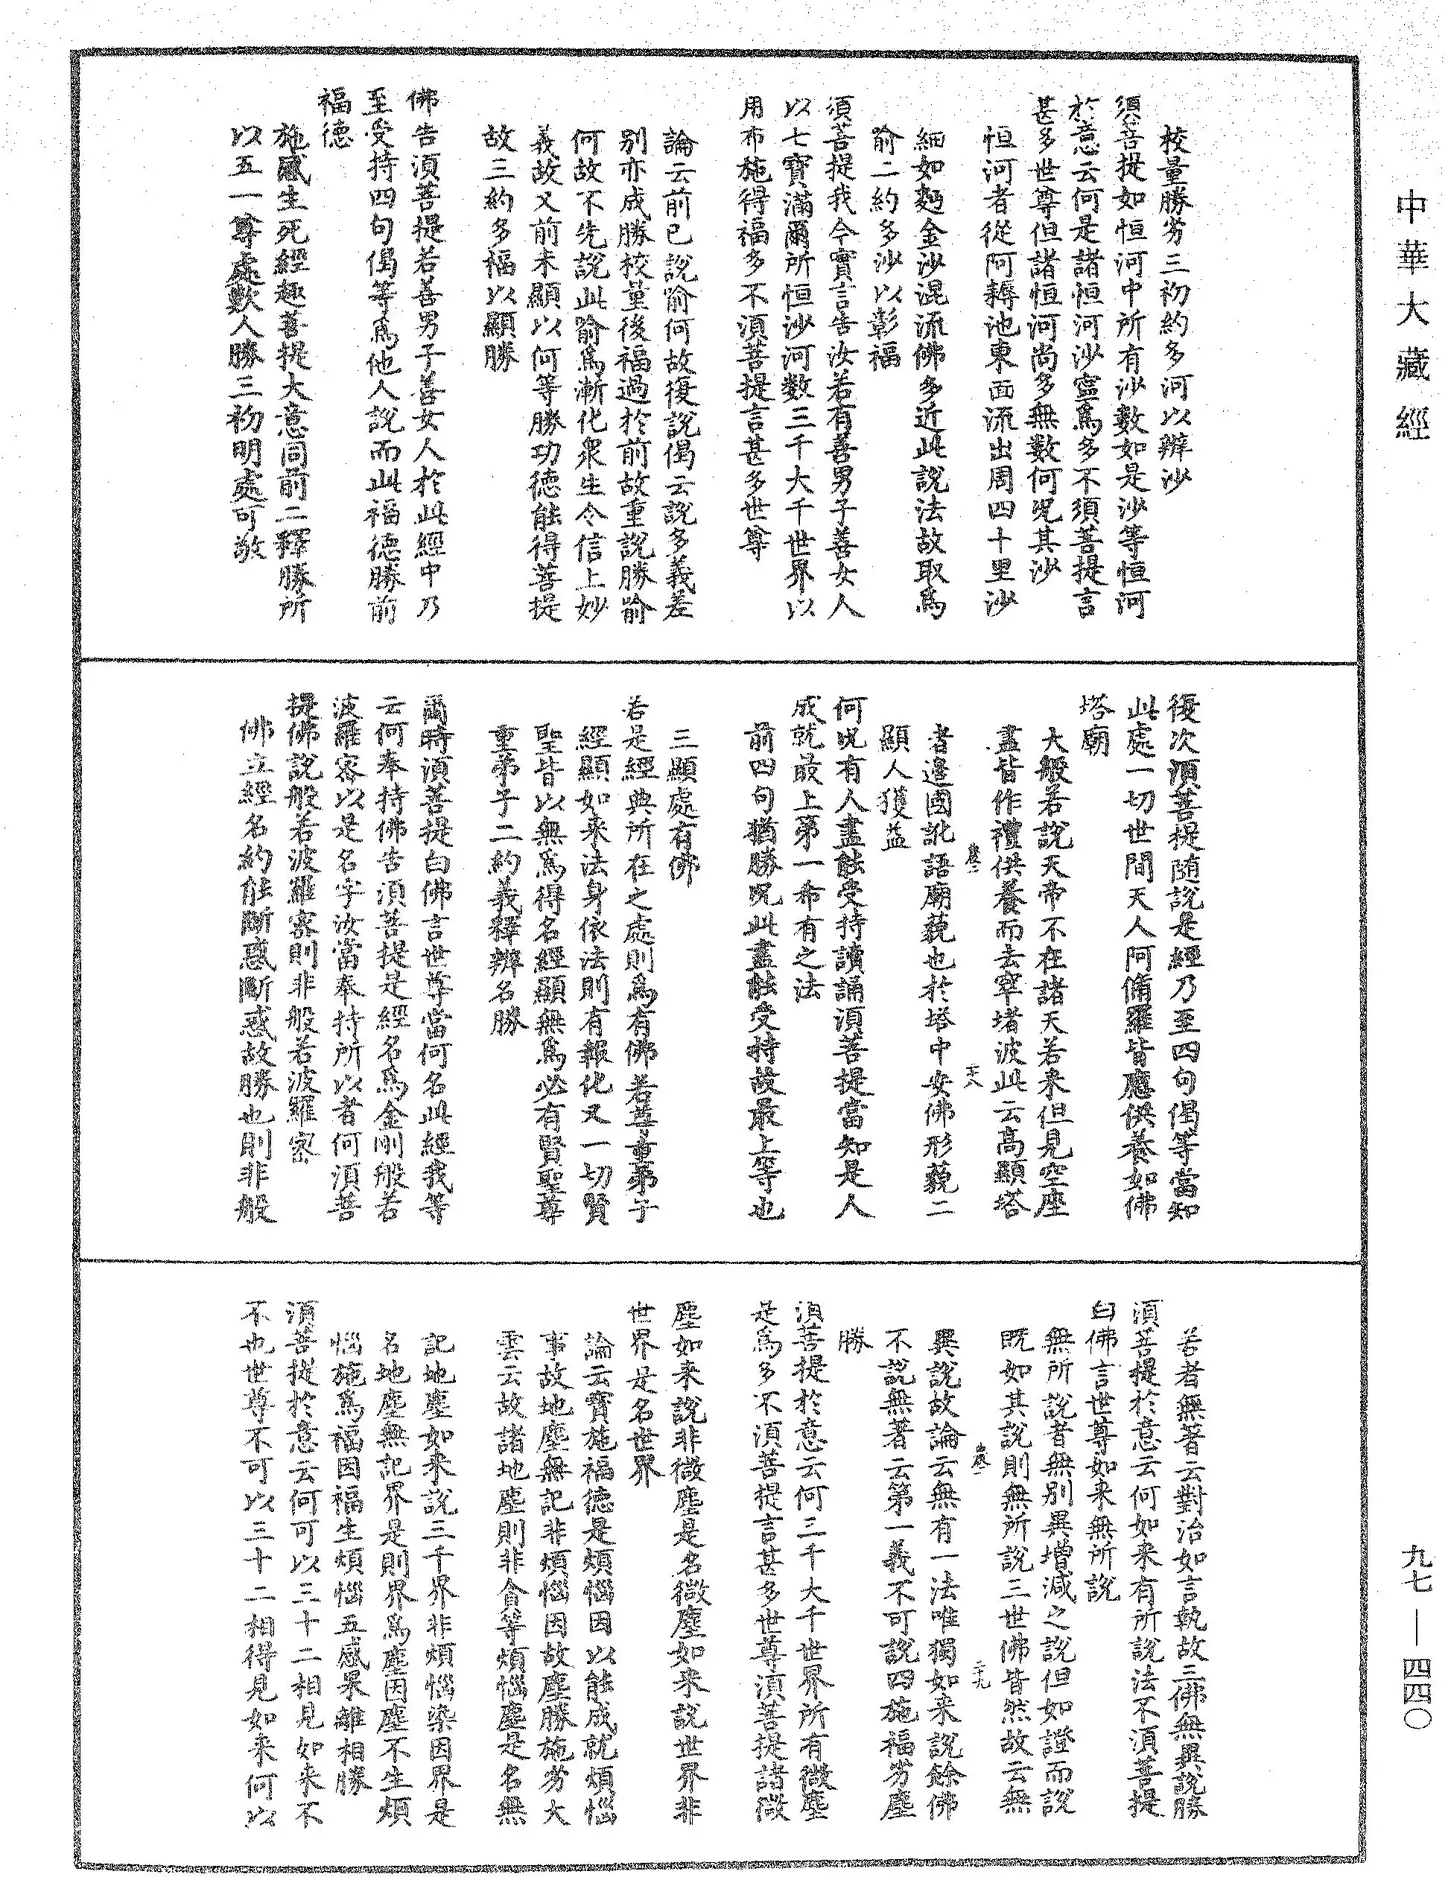 中華大藏經
校量勝劣三初約多河以辨沙
須菩提如恒河中所有沙數如是沙等恒河
於意云何是諸恒河沙寧爲多不須菩提言
甚多世尊但諸恒河尚多無數何況其沙
恒河者從阿耨池東面流出周四十里沙
細如麪金沙混流佛多近此說法故取爲
喻二約多沙以彰福
須菩提我今實言告汝若有善男子善女人
以七寶滿爾所恒沙河數三千大千世界以
用布施得福多不須菩提言甚多世尊
論云前已說喻何故復說偈云說多義差
別亦成勝校量後福過於前故重說勝喻
何故不先說此喻爲漸化衆生令信上妙
義故又前未顯以何等勝功德能得菩提
故三約多福以顯勝
佛告須菩提若善男子善女人於此經中乃
至受持四句偈等爲他人說而此福德勝前
福德
施感生死經趣菩提大意同前二釋勝所
以五一尊處歎人勝三初明處可敬
復次須菩提隨說是經乃至四句偈等當知
此處一切世間天人阿脩羅皆應供養如佛
塔廟
大般若說天帝不在諸天若來但見空座
盡皆作禮供養而去窣堵波此云高顯塔
者邊國訛語廟藐也於塔中安佛形藐二
顯人獲益
何況有人盡能受持讀誦須菩提當知是人
成就最上第一希有之法
前四句猶勝況此盡能受持故最上等也
三顯處有佛
若是經典所在之處則爲有佛若尊重弟子
經顯如來法身依法則有報化又一切賢
聖皆以無爲得名經顯無爲必有賢聖尊
重弟子二約義釋辨名勝
爾時須菩提白佛言世尊當何名此經我等
云何奉持佛告須菩提是經名爲金剛般若
波羅蜜以是名字汝當奉持所以者何須菩
提佛說般若波羅蜜則非般若波羅蜜
佛立經名約能斷惑斷惑故勝也則非般
若者無著云對治如言執故三佛無異說勝
須菩提於意云何如來有所說法不須菩提
白佛言世尊如來無所說
無所說者無別異增減之說但如證而說
既如其說則無所說三世佛皆然故云無
異說故論云無有一法唯獨如來說餘佛
不說無著云第一義不可說四施福劣塵
勝
須菩提於意云何三千大千世界所有微塵
是爲多不須菩提言甚多世尊須菩提諸微
塵如來說非微塵是名微塵如來說世界非
世界是名世界
論云寶施福德是煩惱因以能成就煩惱
事故地塵無記非煩惱因故塵勝施劣大
雲云故諸地塵則非貪等煩惱塵是名無
記地塵如來說三千界非煩惱染因界是
名地塵無記界是則界爲塵因塵不生煩
惱施爲福因福生煩惱五感果離相勝
須菩提於意云何可以三十二相見如來不
不也世尊不可以三十二相得見如來何以
九七—四四〇